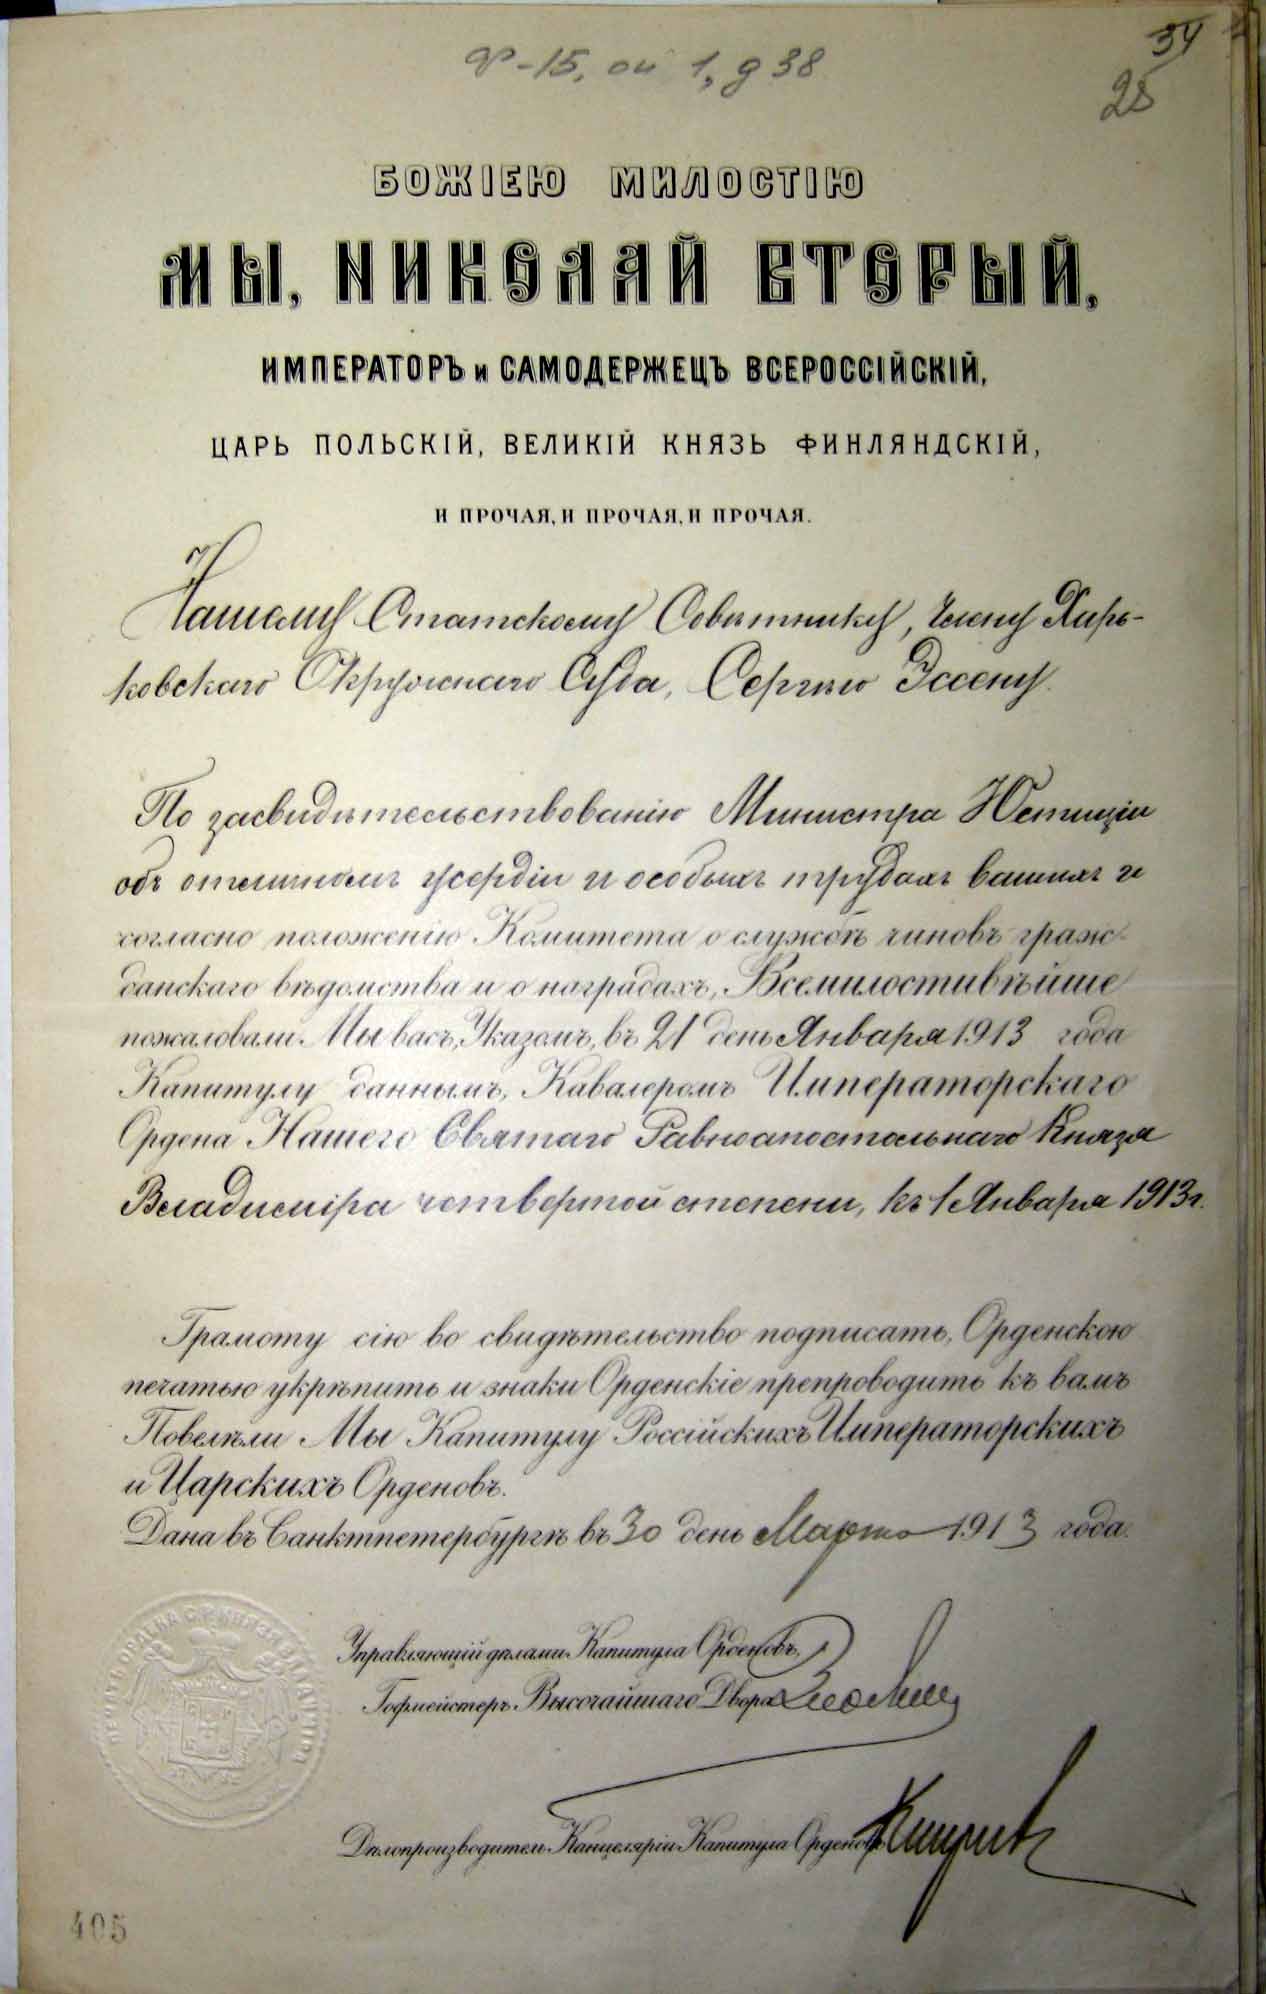 Ф-15, оп 1, д 38
34
25
БОЖІЕЮ МИЛОСТІЮ
МЫ, НИКОЛАЙ ВТОРЫЙ,
ИМПЕРАТОРЪ и САМОДЕРЖЕЦЪ ВСЕРОССІЙСКІЙ,
ЦАРЬ ПОЛЬСКІЙ, ВЕЛИКІЙ КНЯЗЬ ФИНЛЯНДСКІЙ,
И ПРОЧАЯ, И ПРОЧАЯ, И ПРОЧАЯ.
Нашему Статскому Совѣтнику, Члену Харь-
ковскаго Окружнаго Суда, Сергѣю Эссену.
По засвидѣтельствованію Министра Юстиціи
объ отличномъ усердіи и особыхъ трудахъ вашихъ и
согласно положенію Комитета о службѣ чиновъ граж-
данскаго вѣдомства и о наградахъ, Всемилостивѣйше
пожаловали Мы васъ, Указомъ, въ 21 день Января 1913 года
Капитулу даннымъ, Кавалеромъ Императорскаго
Ордена Нашего Святаго Равноапостольнаго Князя
Владиміра четвертой степени, къ 1 Января 1913 г.
Грамоту сію во свидѣтельство подписать, Орденскою
печатью укрѣпить и знаки Орденскіе препроводить къ вамъ
Повелѣли Мы Капитулу Россійскихъ Императорскихъ
и Царскихъ Орденовъ.
Дана въ Санктпетербургѣ въ 30 день Марта 1913 года.
Управляющій дѣлами Капитула Орденовъ,
Гофмейстеръ Высочайшаго Двора
Дѣлопроизводитель Канцеляріи Капитула Орденовъ
ПЕЧАТЬ ОРДЕНА СВ. КНЯЗЯ ВЛАДИМІРА
405